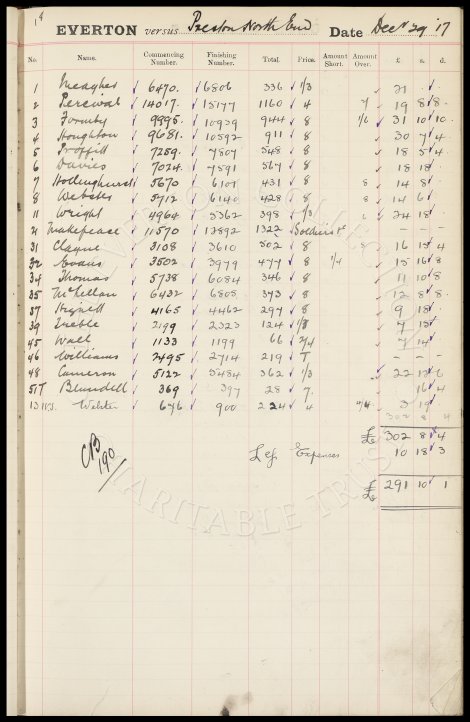 14
EVERTON versus Preston North End Date Decr 29 '17
No. Name. Commencing Number. Finishing Number. Total. Price. Amount Short. Amount Over. £ s. d.
1 Meagher 6470 6806 336 1/3 21
2 Percival 14017 15177 1160 4 7 19 8 8
3 Formby 9995 10939 944 8 1/6 31 10 10
4 Houghton 9681 10592 911 8 30 7 4
5 Proffitt 7259 7807 548 8 18 5 4
6 Davies 7024 7591 567 8 18 18
7 Hollinghurst 5670 6101 431 8 8 14 8
8 Webster 5712 6140 428 8 8 14 6
11 Wright 4964 5362 398 1/3 24 18
21 Makepeace 11570 12892 1322 Soldiers - - -
31 Clayne 3108 3610 502 8 8 16 15 4
32 Evans 3502 3979 477 8 1/4 15 16 8
34 Thomas 5738 6084 346 8 11 10 8
35 McLellan 6432 6805 373 8 12 8 8
37 Hignett 4165 4462 297 8 9 18
39 Treble 2199 2323 124 1/3 7 15
45 Wall 1133 1199 66 2/4 7 14
46 Williams 2495 2714 219 T - - -
48 Cameron 5122 5484 362 1/3 22 12 6
51T Blundell 369 397 28 7 16 4
13 Webster 676 900 224 4 2/4 3 19
302 8 4
£ 302 8 4
CB 190 Less Expenses 10 18 3
£ 291 10 1
CHARITABLE TRUST